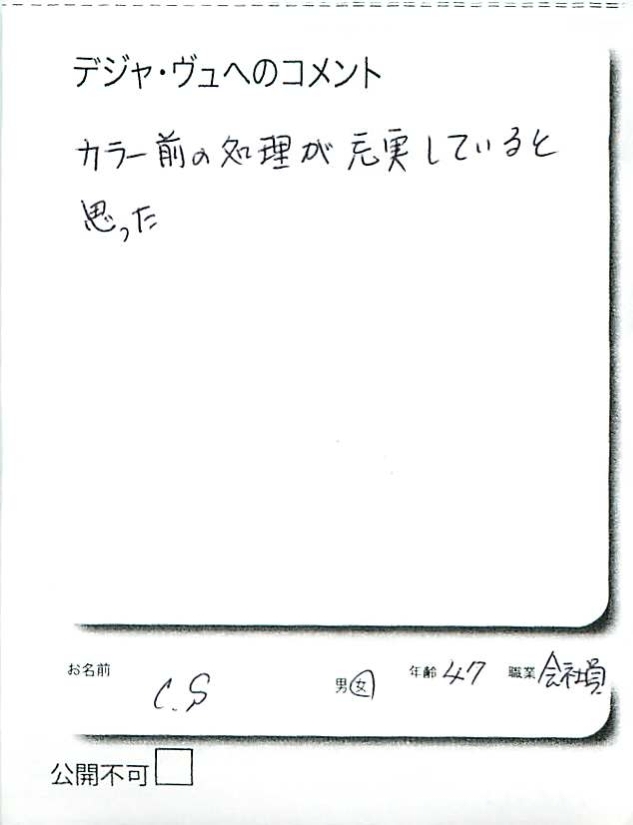 デジャ・ヴュへのコメント
カラー前の処理が充実していると
思った
お名前 C.S 男 女 年齢 47 職業 会社員
公開不可